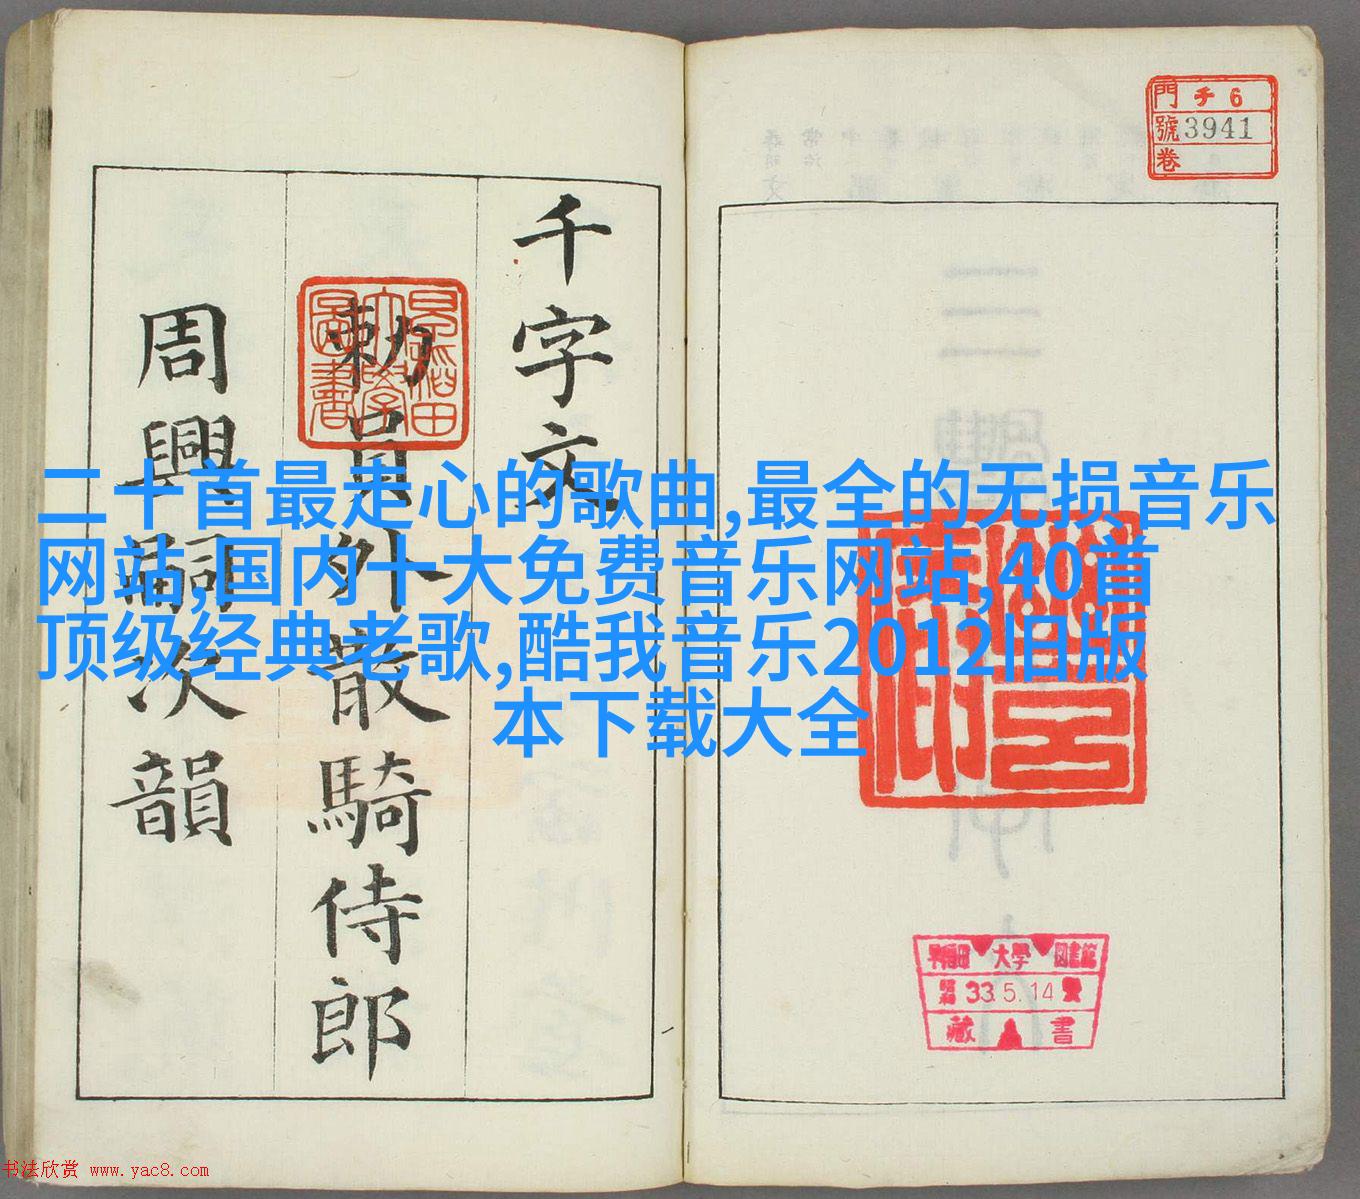 千字文
勅員外散騎侍郎
周興嗣次韻
早稲田大學圖書
門 チ6
號 3941
卷
二十首最走心的歌曲,最全的无损音乐
网站,国内十大免费音乐网站,40首
顶级经典老歌,酷我音乐2012旧版
本下载大全
早稲田 大學 図書館
昭和 33.5.14
藏書
书法欣赏 www.yac8.com